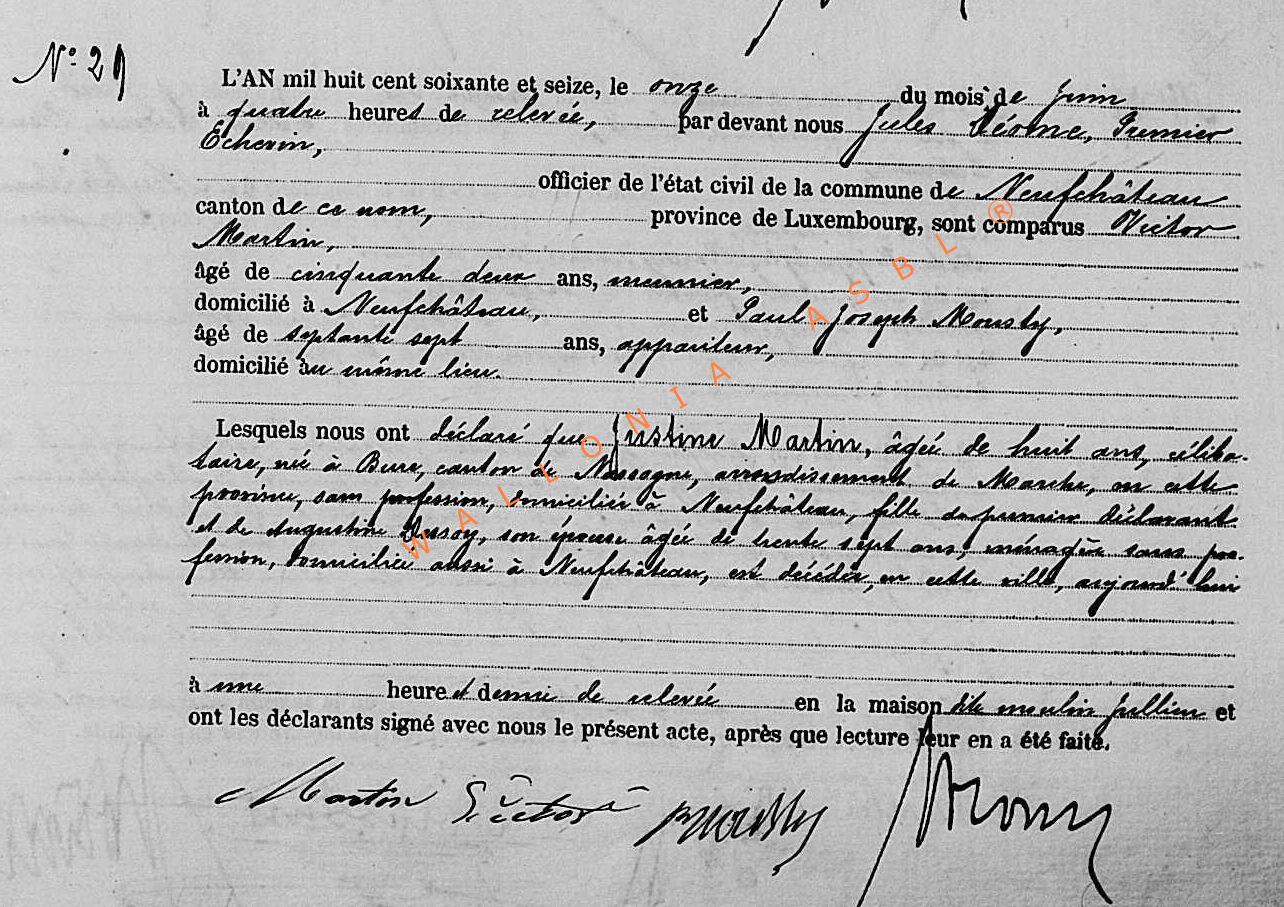 N° 29
L'AN mil huit cent soixante et seize, le onze du mois de Juin
à quatre heures de relevée, par devant nous Jules Dérome, Premier
Échevin,
officier de l'état civil de la commune de Neufchâteau
canton de ce nom, province de Luxembourg, sont comparus Victor
Martin,
âgé de cinquante deux ans, meunier,
domicilié à Neufchâteau, et Paul Joseph Mousty,
âgé de septante sept ans, appariteur,
domicilié au même lieu.
Lesquels nous ont déclaré que Justine Martin, âgée de huit ans, céliba-
taire, née à Bure, canton de Nassogne, arrondissement de Marche, en cette
province, sans profession, domiciliée à Neufchâteau, fille du premier déclarant
et de Augustine Dessoy, son épouse âgée de trente sept ans, ménagère sans pro-
fession, domiciliée aussi à Neufchâteau, est décédée, en cette ville, aujourd'hui
à une heure et demie de relevée en la maison dite moulin et
ont les déclarants signé avec nous le présent acte, après que lecture leur en a été faite.
Martin Victor PMousty
WALLONIA ASBL ®